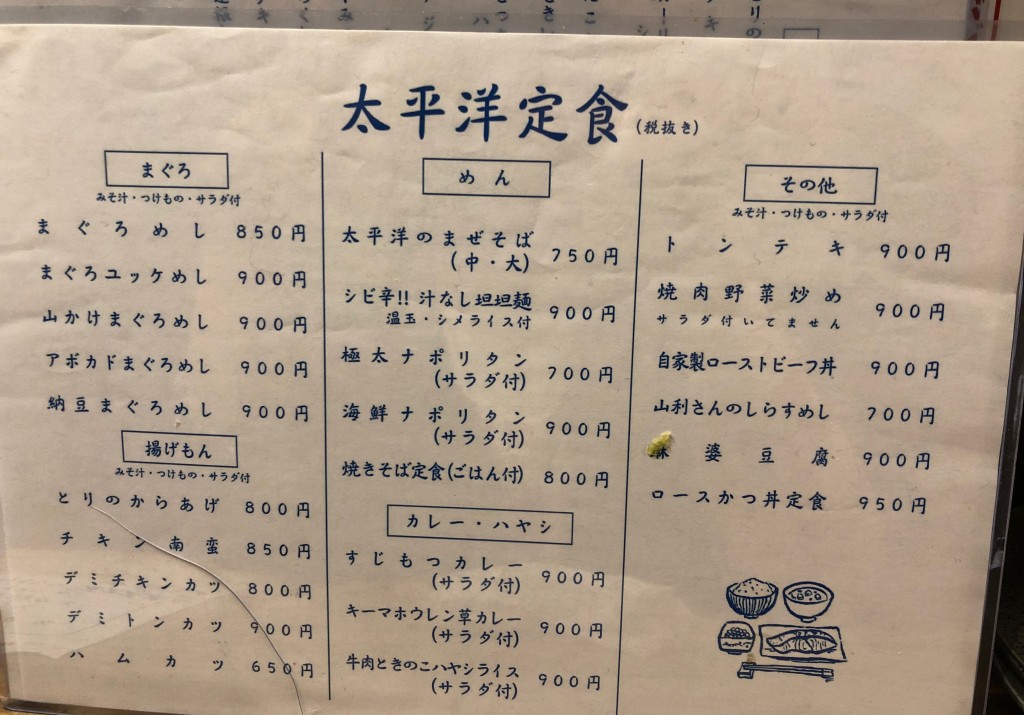 太平洋定食(税抜き)
まぐろ
みそ汁・つけもの・サラダ付
まぐろめし 850円
まぐろユッケめし 900円
山かけまぐろめし 900円
アボカドまぐろめし 900円
納豆まぐろめし 900円
揚げもん
みそ汁・つけもの・サラダ付
とりのからあげ 800円
チキン南蛮 850円
デミチキンカツ 800円
デミトンカツ 900円
ハムカツ 650円
めん
太平洋のまぜそば
(中・大) 750円
シビ辛!! 汁なし坦坦麺
温玉・シメライス付 900円
極太ナポリタン
(サラダ付) 700円
海鮮ナポリタン
(サラダ付) 900円
焼きそば定食(ごはん付) 800円
カレー・ハヤシ
すじもつカレー
(サラダ付) 900円
キーマホウレン草カレー
(サラダ付) 900円
牛肉ときのこハヤシライス
(サラダ付) 900円
その他
みそ汁・つけもの・サラダ付
トンテキ 900円
焼肉野菜炒め 900円
サラダ付いてません
自家製ローストビーフ丼 900円
山利さんのしらすめし 700円
麻婆豆腐 900円
ロースかつ丼定食 950円